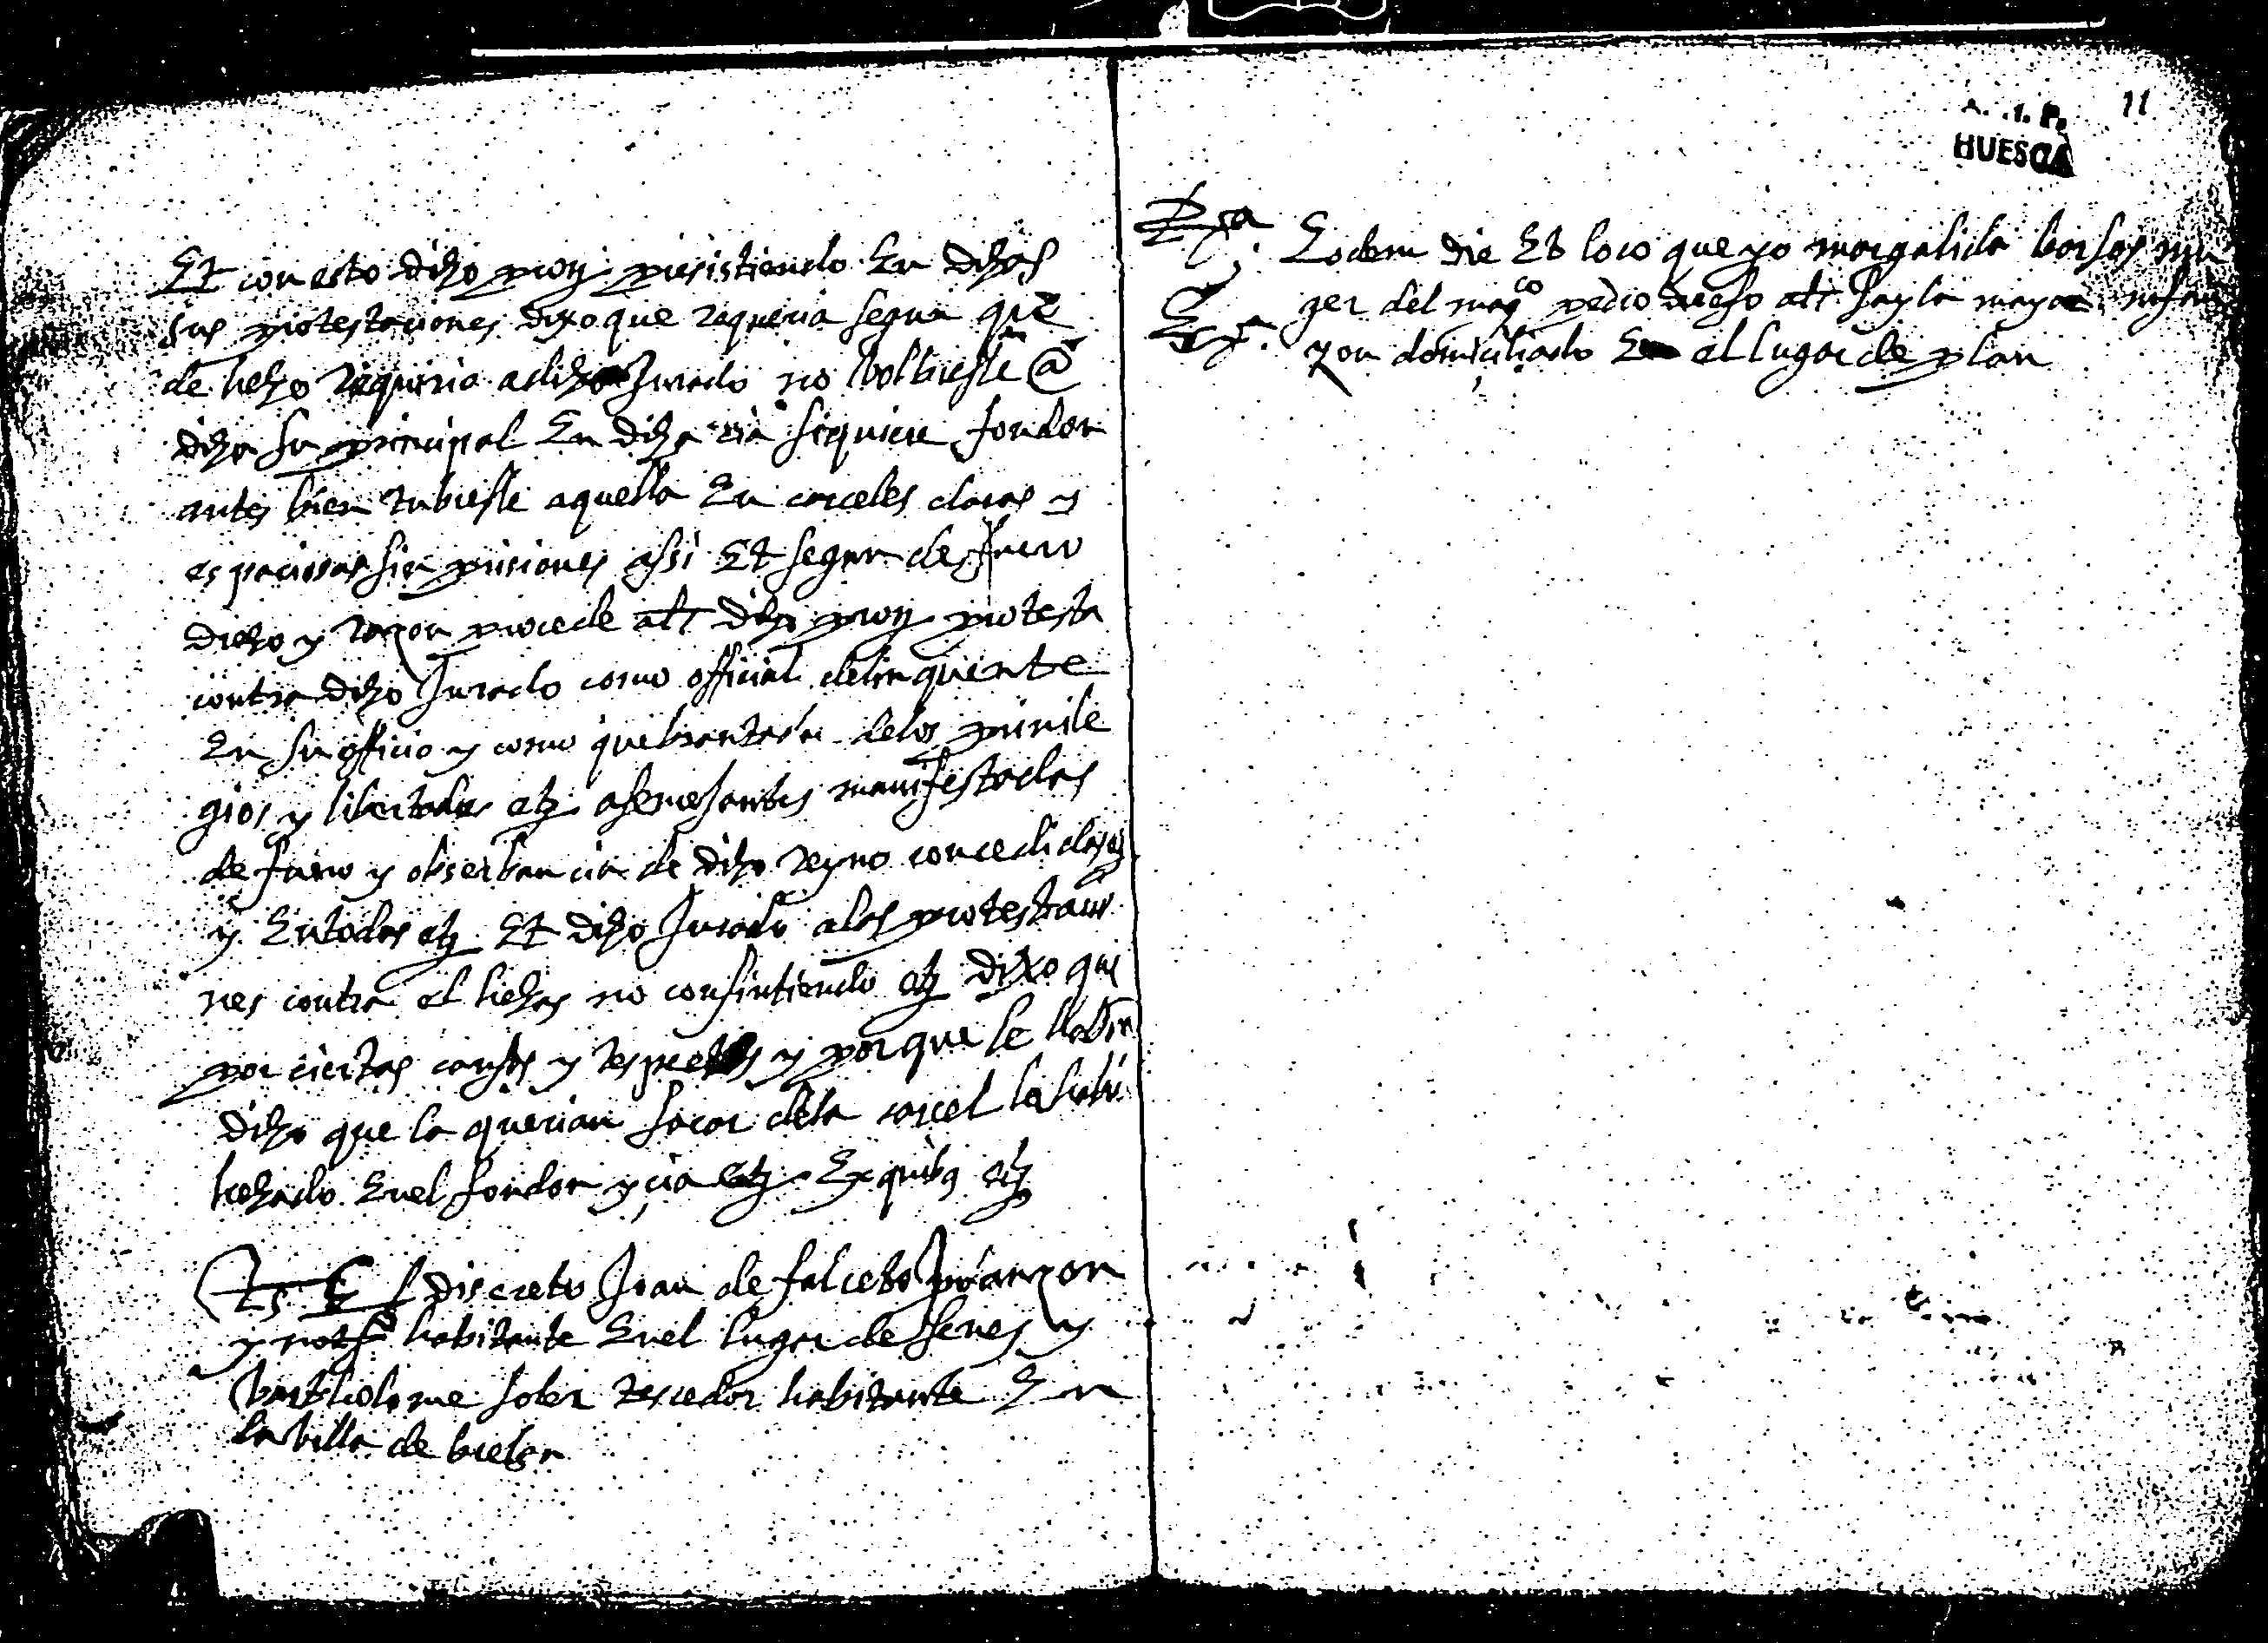 Et con esto dicho procr persistiendo En dichas
sus protestaciones dixo que requeria segun que
de hecho requeria a dicho Jurado no bolbiesse a
dicha su principal En dicha cia siquiere fondon
antes bien tubiesse aquella En carceles claras y
espaciosas sin prisiones assi Et segun de fuero
drecho y razon procede alr dicho procr protesta
contra dicho Jurado como official delinquente
En su officio y como quebrantador delos privile
gios y libertades etz a semejantes manifestadas
de fuero y observancia de dicho reyno concedidas etz
y En todas etz Et dicho Jurado a las protestacio
nes contra el hechas no consintiendo etz dixo que
por ciertas causas y respectos y porque se habia
dicho que la querian sacar dela carcel la habia
hechado En el fondon y cia etz Ex quibus etz
Ts El discreto Juan de falceto Infanzon
y notº habitante En el lugar de senes y
bartholome soler texedor habitante En
la billa de bielsa
A. H. P. 11
HUESCA
Eodem die Et loco que yo margalida borsas mu
ger del magco pedro alr sayla mayor infan
zon domiciliado En el lugar de plan